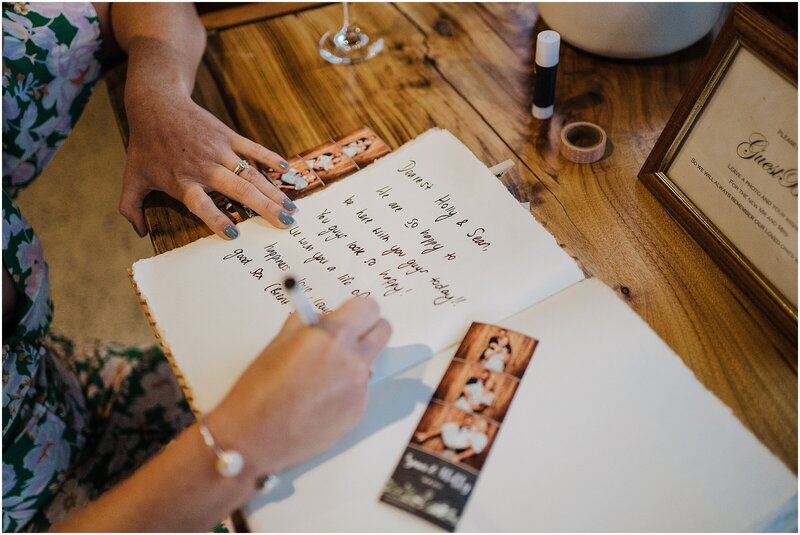 Dearest Holly & Sean,
We are so happy to
be here with you guys today!!
You guys look so happy!
We wish you a life of
happiness, love,
good sex
Sean & Holly
PLEASE
Guest B
LEAVE A PHOTO AND YOUR
FOR THE NEW MR AND MRS
SO WE WILL ALWAYS REMEMBER OUR LOVED ONES